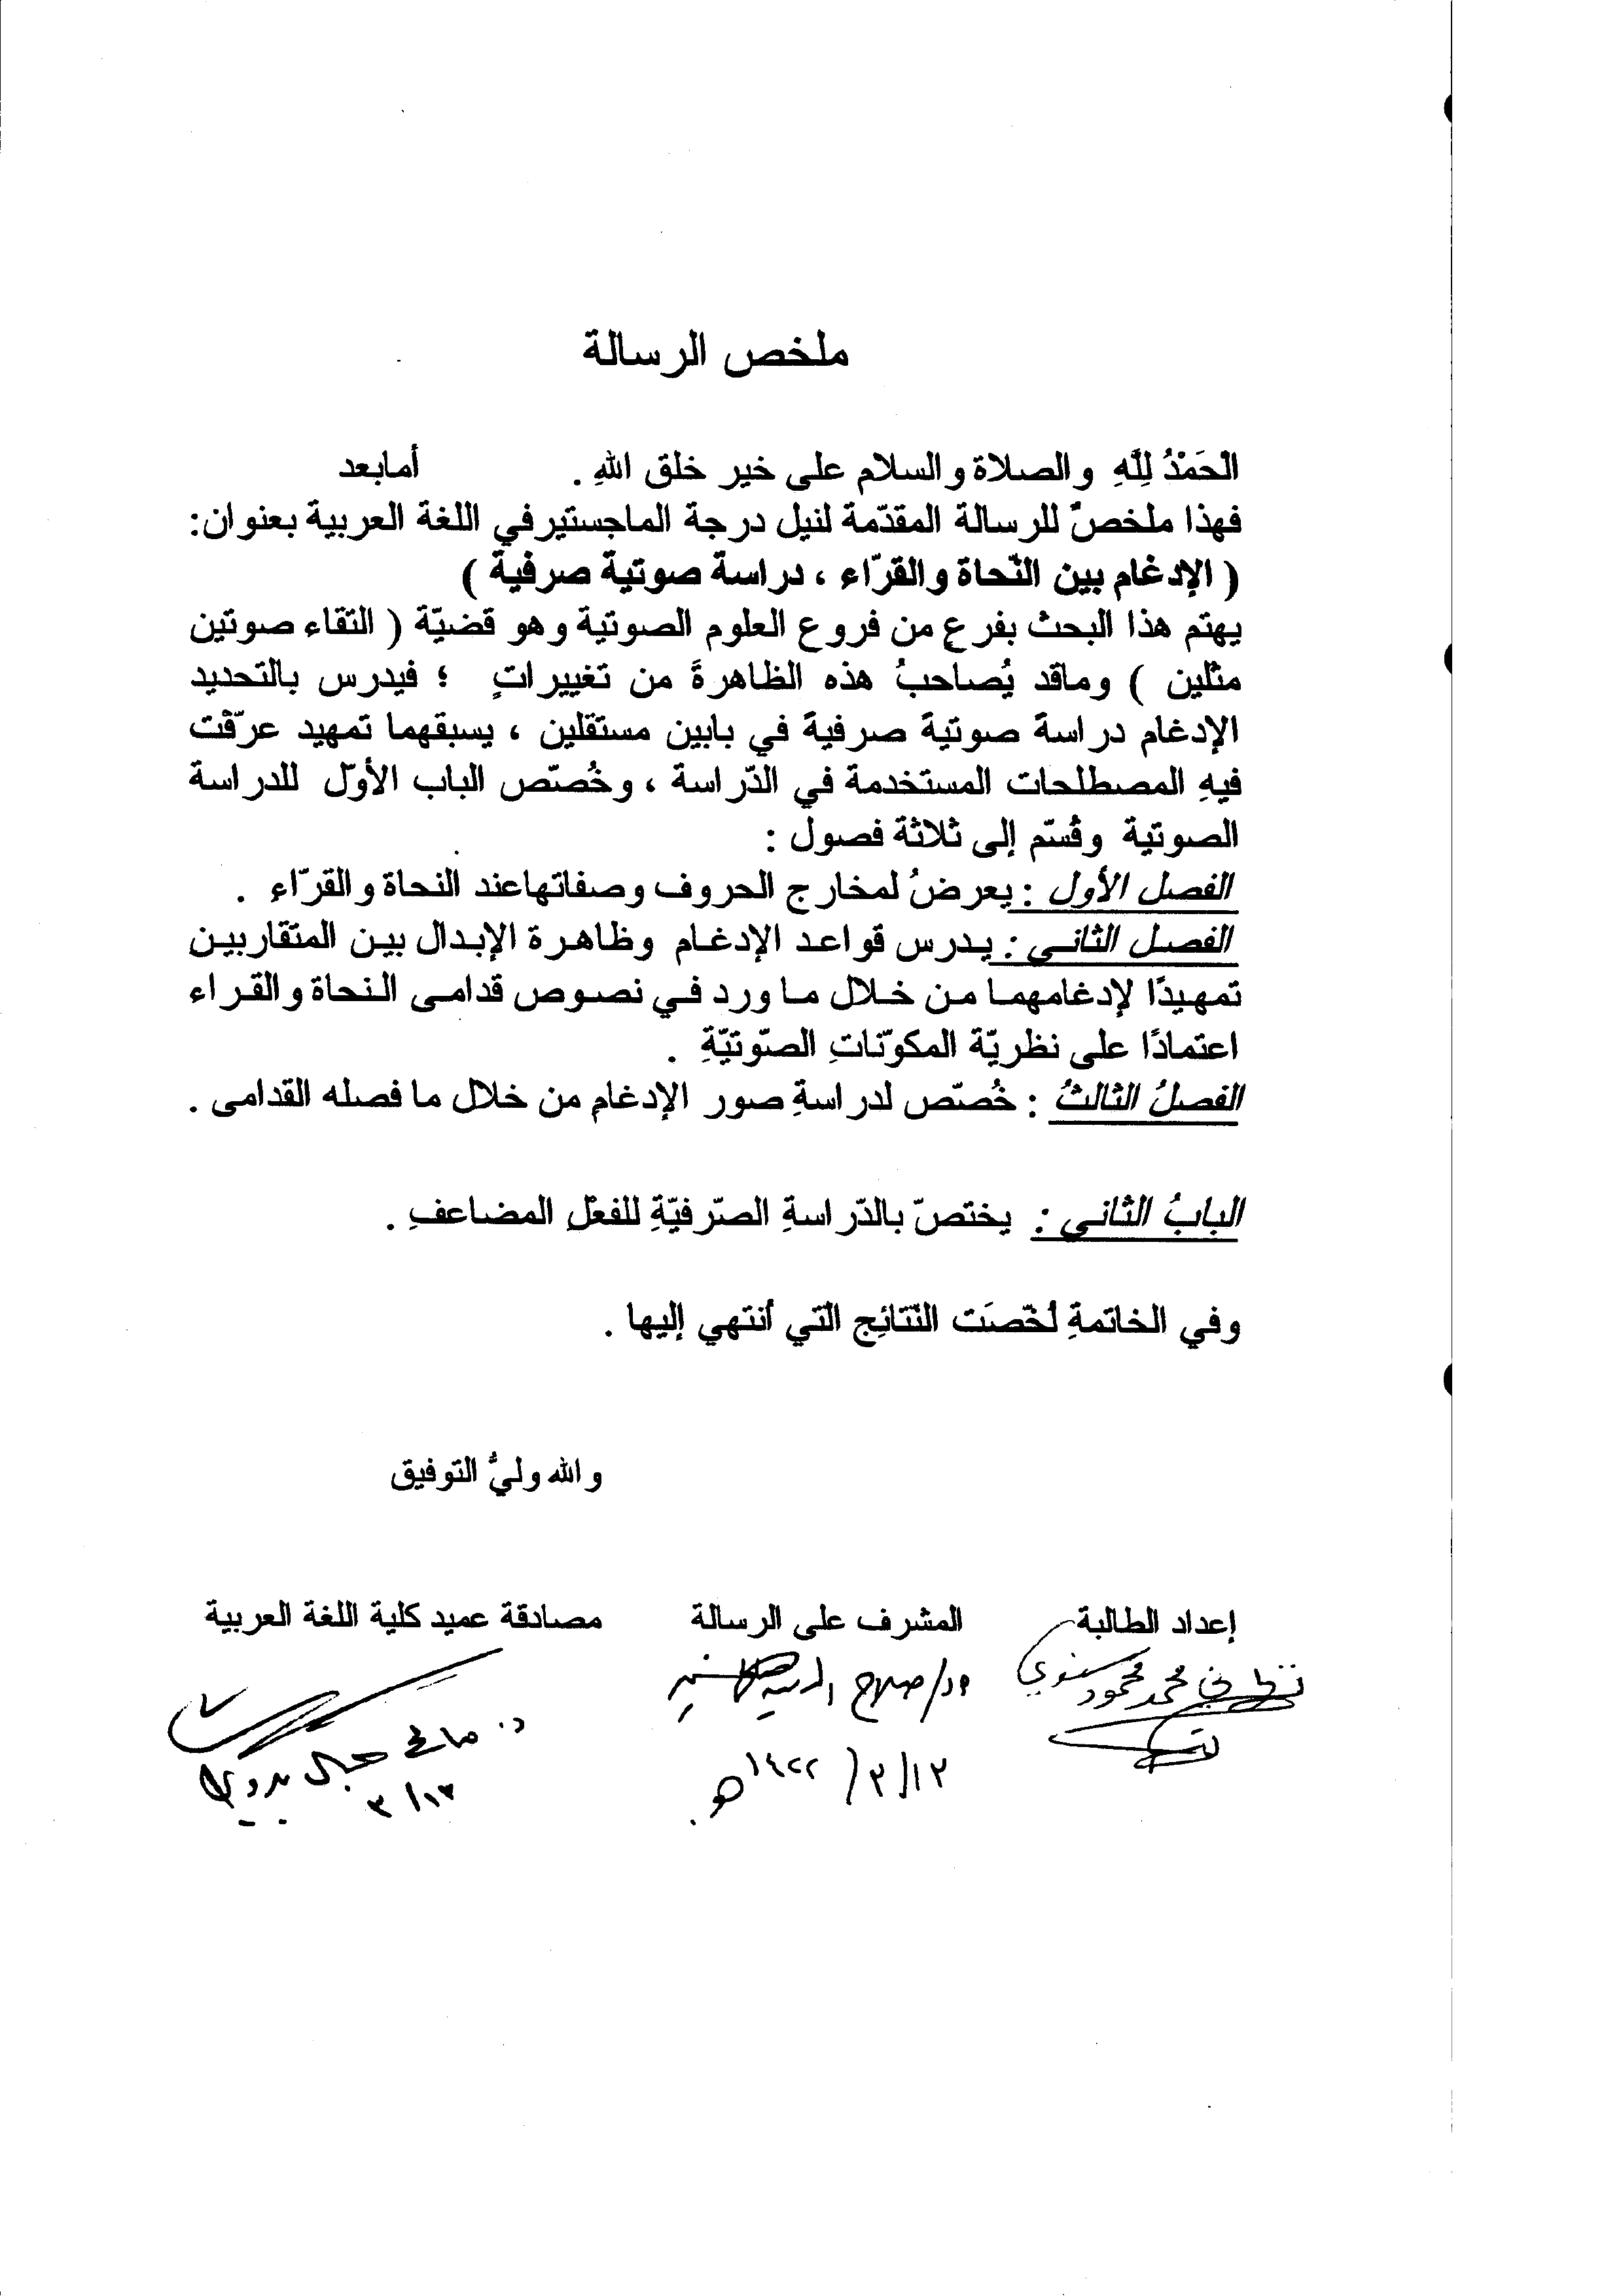 ملخص الرسالة
الحَمْدُ لِلَّهِ والصلاة والسلام على خير خلق اللهِ . أمابعد
فهذا ملخصٌ للرسالة المقدّمة لنيل درجة الماجستيرفي اللغة العربية بعنوان:
( الإدغام بين النّحاة والقرّاء ، دراسة صوتية صرفية )
يهتم هذا البحث بفرع من فروع العلوم الصوتية وهو قضيّة ( التقاء صوتين
مثلين ) وماقد يُصاحبُ هذه الظاهرةَ من تغييراتٍ ؛ فيدرس بالتحديد
الإدغام دراسةً صوتيةً صرفيةً في بابين مستقلين ، يسبقهما تمهيد عرّفْت
فيهِ المصطلحات المستخدمة في الدّراسة ، وخُصّص الباب الأوّل للدراسة
الصوتية وقُسّم إلى ثلاثة فصول :
الفصل الأول : يعرضُ لمخارج الحروف وصفاتهاعند النحاة والقرّاء .
الفصل الثاني : يدرس قواعد الإدغام وظاهرة الإبدال بين المتقاربين
تمهيدًا لإدغامهما من خلال ما ورد في نصوص قدامى النحاة والقراء
اعتمادًا على نظريّة المكوّناتِ الصّوتيّةِ .
الفصلُ الثالثُ : خُصّص لدراسةِ صور الإدغام من خلال ما فصله القدامى .
البابُ الثاني : يختصّ بالدّراسةِ الصّرفيّةِ للفعْلِ المضاعفِ .
وفي الخاتمةِ لخّصَت النّتائِج الّتي أنتهي إليها .
والله وليُّ التوفيق
إعداد الطالبة المشرف على الرسالة مصادقة عميد كلية اللغة العربية
محمد محمود سنوي د/ صلاح الدين
د. صالح جمال بدوي
١٣/٣/١٤٢٢هـ
١٣/٣